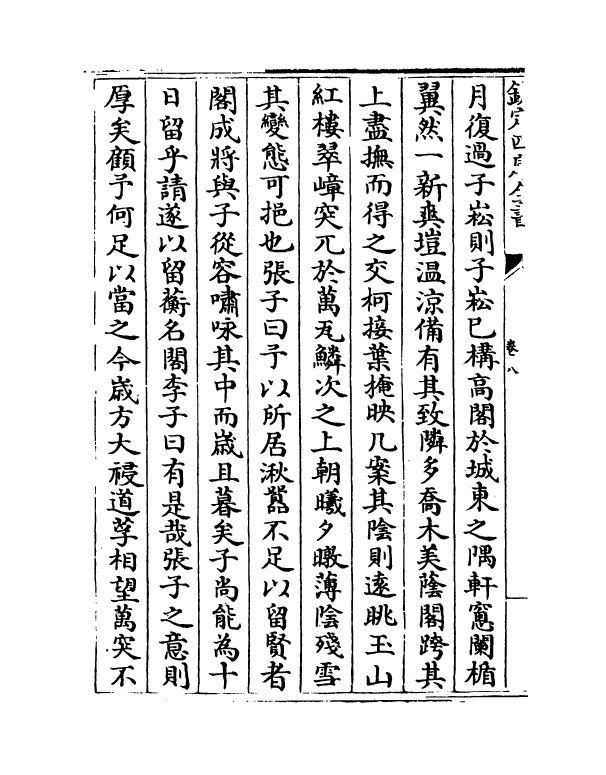 欽定四庫全書
卷八
月復過子崧則子崧已構高閣於城東之隅軒窻闌楯
翼然一新爽塏温涼備有其致隣多喬木美蔭閣跨其
上盡撫而得之交柯接葉掩映几案其陰則逺眺玉山
紅樓翠嶂突兀於萬瓦鱗次之上朝曦夕暾薄陰殘雪
其變態可挹也張子曰予以所居湫嚣不足以留賢者
閣成將與子從容嘯咏其中而嵗且暮矣子尚能為十
日留乎請遂以留蘅名閣李子曰有是哉張子之意則
厚矣顧予何足以當之今嵗方大祲道莩相望萬突不